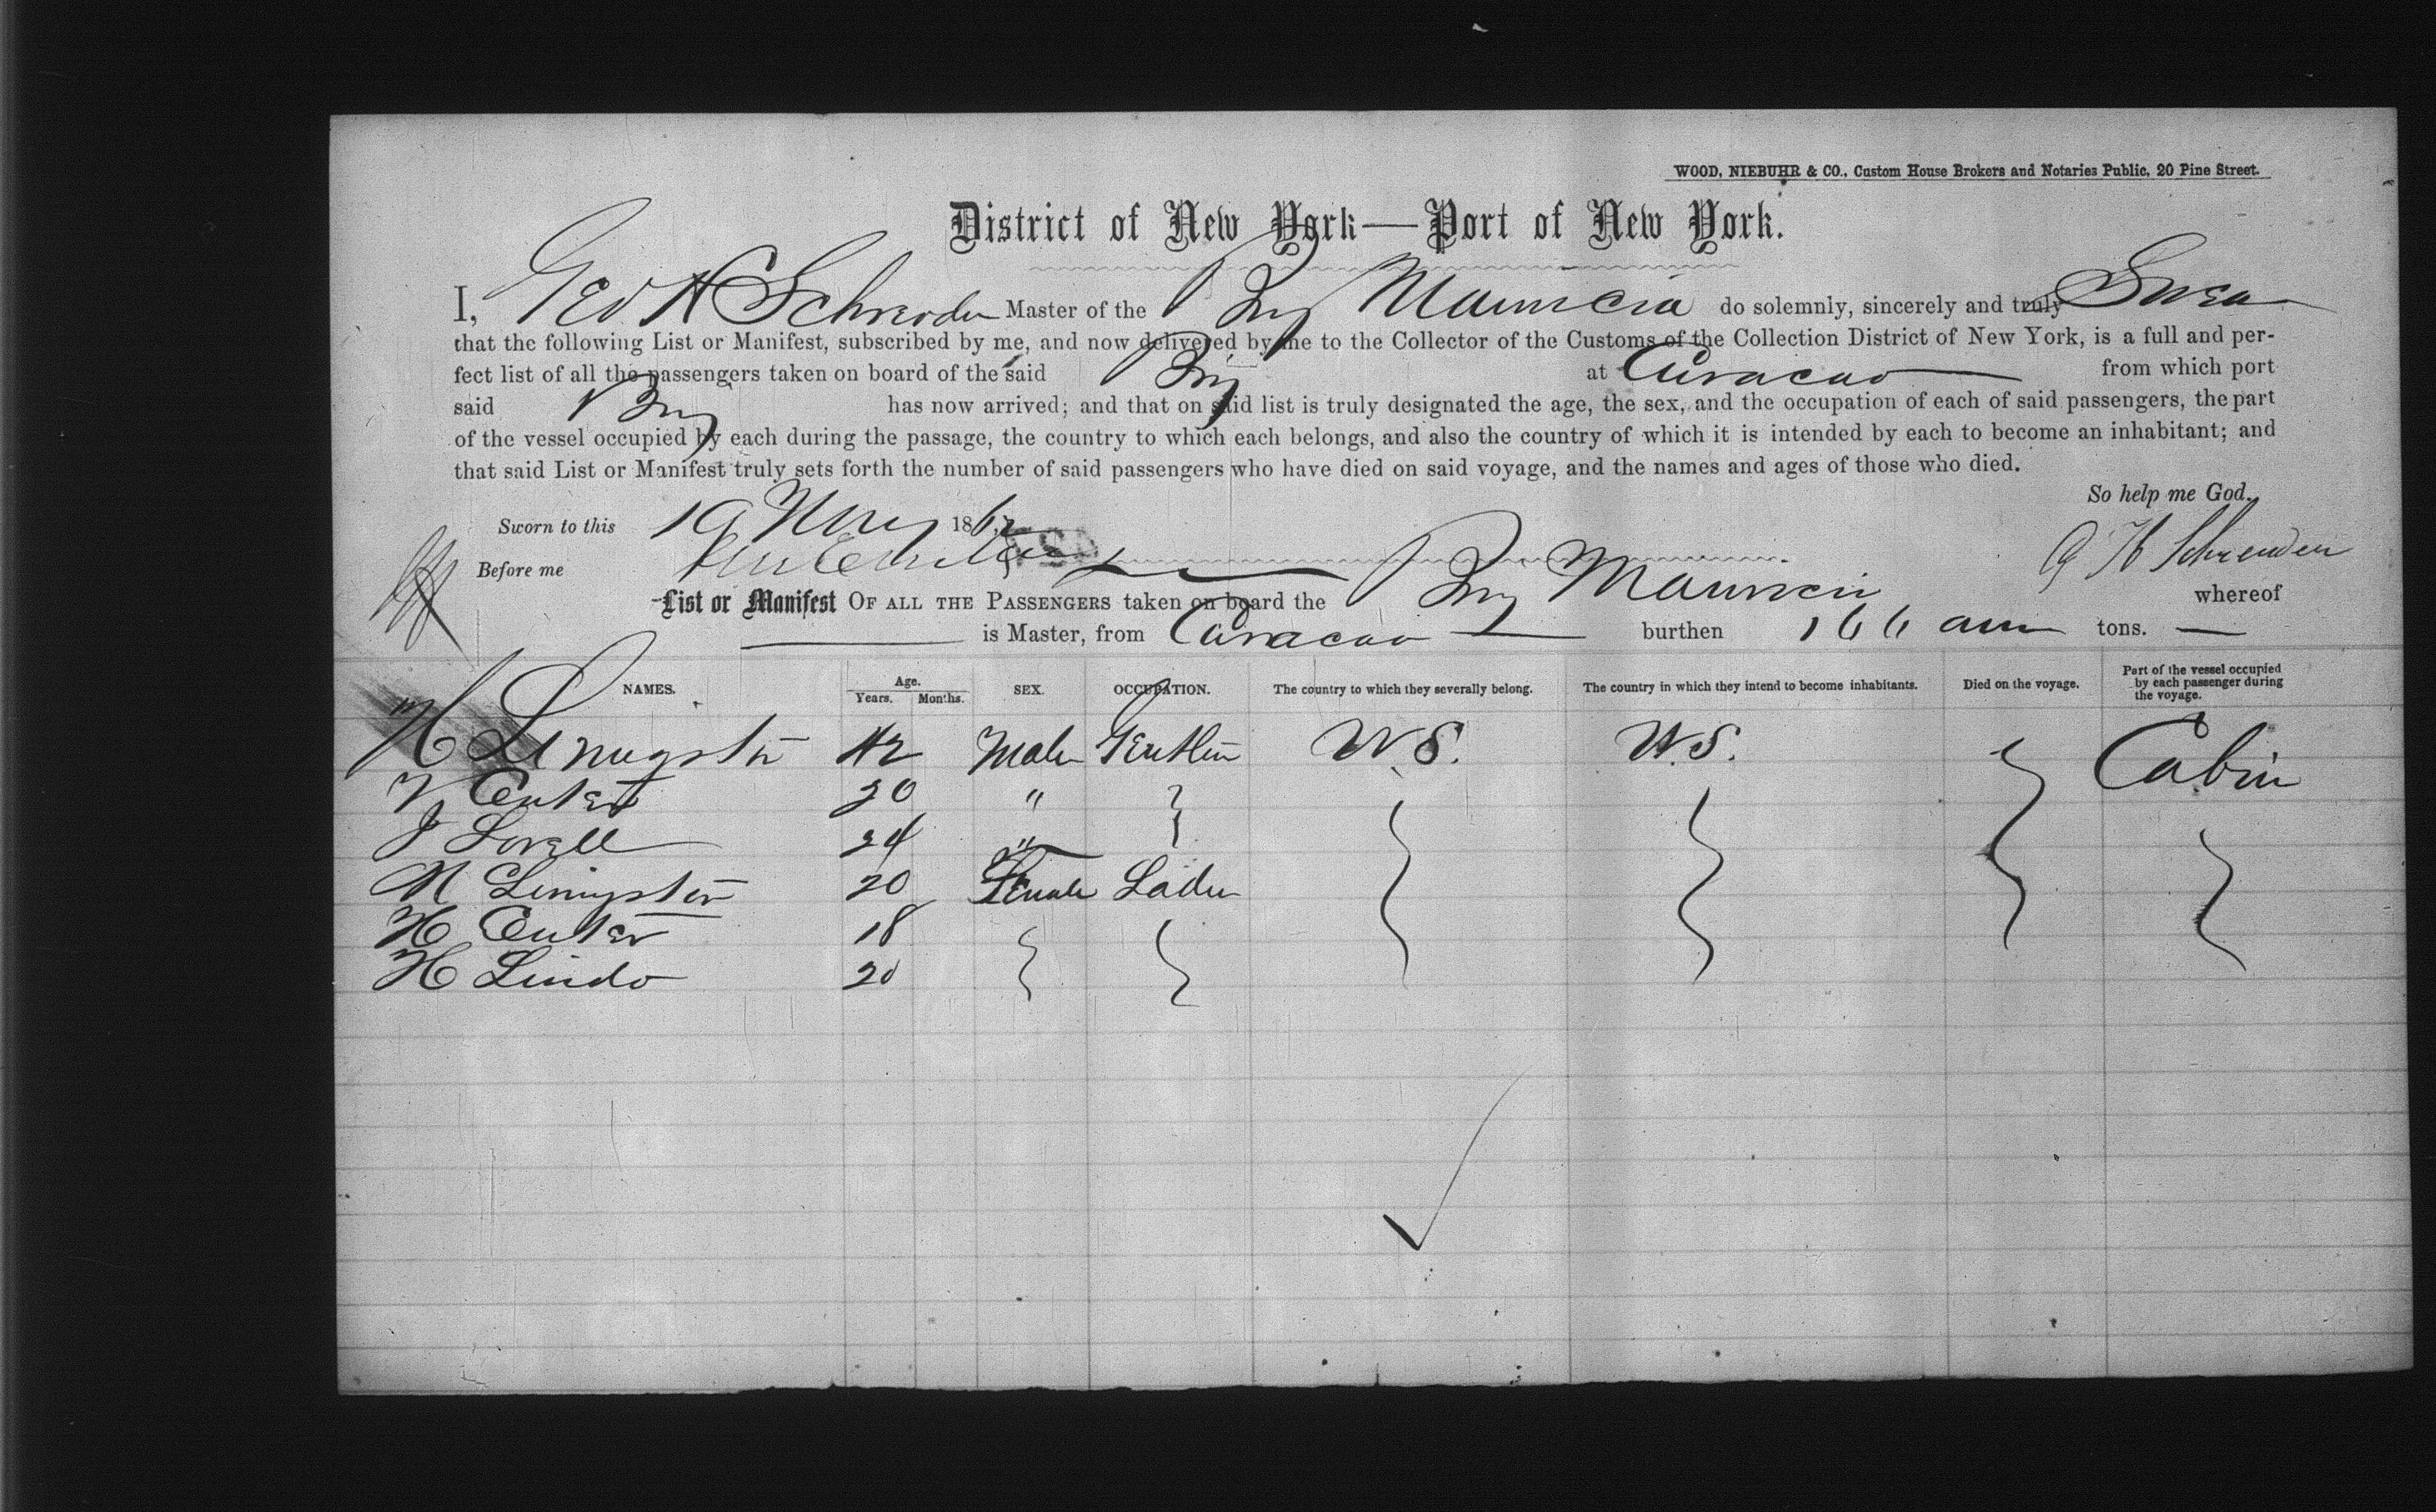 WOOD, NIEBUHR & CO., Custom House Brokers and Notaries Public, 20 Pine Street.
District of New York—Port of New York.
I, Geo H Schreoder Master of the Brig Mauricia do solemnly, sincerely and truly Swear
that the following List or Manifest, subscribed by me, and now delivered by me to the Collector of the Customs of the Collection District of New York, is a full and per-
fect list of all the passengers taken on board of the said Brig at Curacao from which port
said Brig has now arrived; and that on said list is truly designated the age, the sex, and the occupation of each of said passengers, the part
of the vessel occupied by each during the passage, the country to which each belongs, and also the country of which it is intended by each to become an inhabitant; and
that said List or Manifest truly sets forth the number of said passengers who have died on said voyage, and the names and ages of those who died.
So help me God.
Sworn to this 19 186
Before me G H Schreuder
List or Manifest OF ALL THE PASSENGERS taken on board the Brig Mauricia whereof
is Master, from Curacao burthen 166 tons.
NAMES. Age. Years. Months. SEX. OCCUPATION. The country to which they severally belong. The country in which they intend to become inhabitants. Died on the voyage. Part of the vessel occupied by each passenger during the voyage.
H Livingston 42 Male Gentlem U.S. U.S. Cabin
20 "
J Lovell 24 "
M Livingston 20 Female Ladie
H 18
H Lindo 20